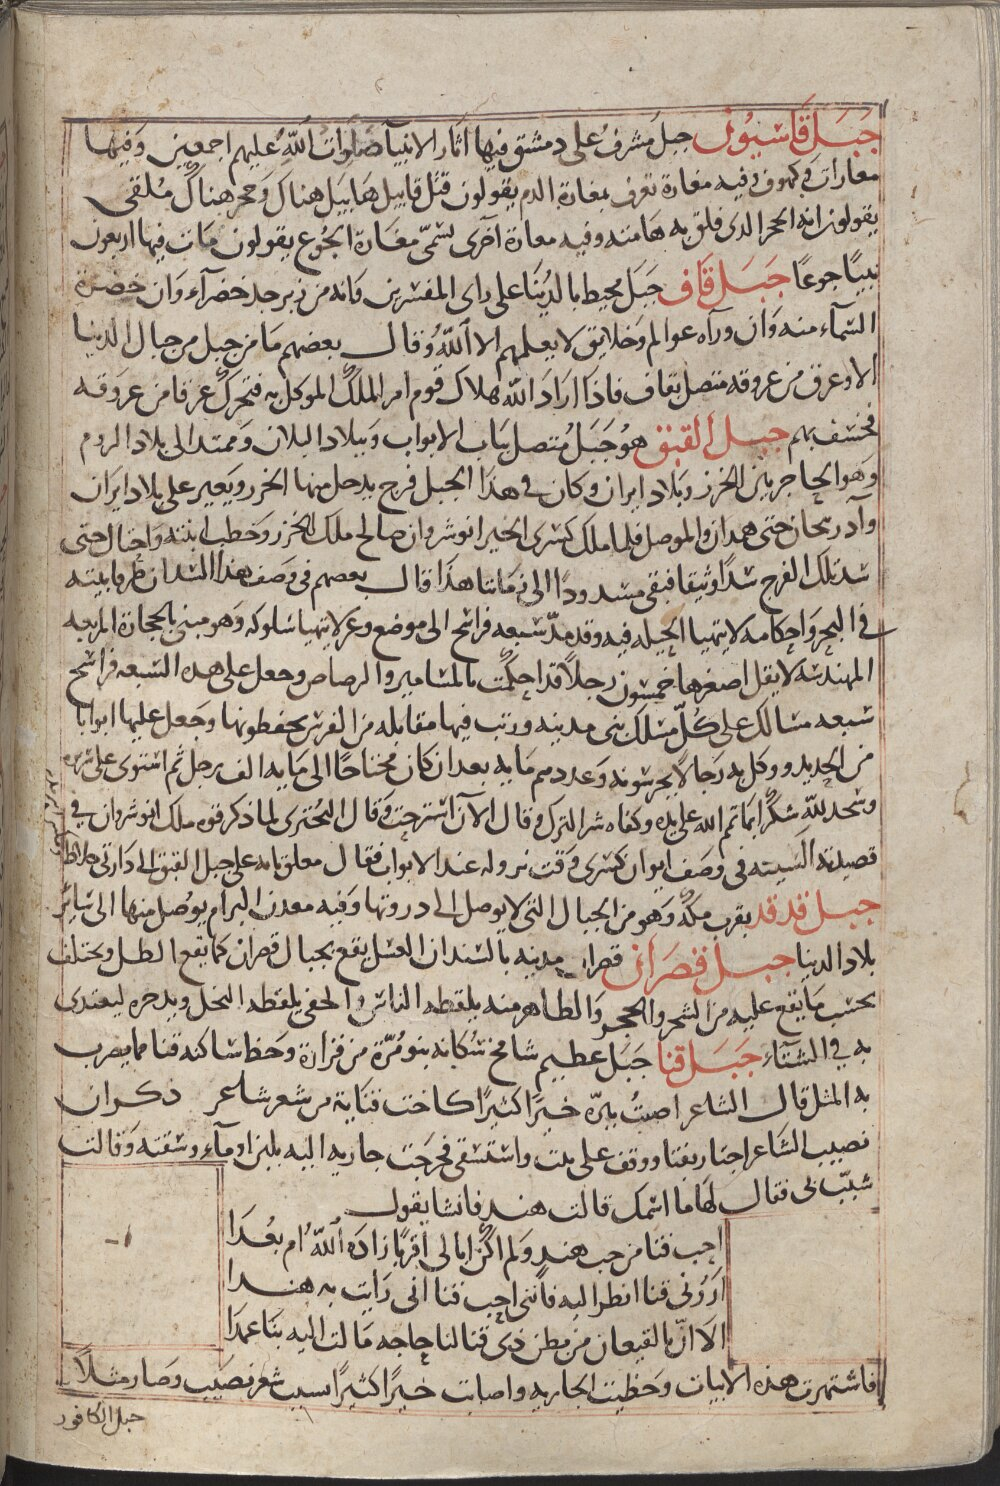 جبل قاسيون جبل مشرف على دمشق فيها آثار الانبيآ صلوات الله عليهم اجمعين وفيها
مغارات وكهوف وفيه مغارة تعرف بمغارة الدم يقولون قتل قابيل هابيل هناك وحجر هناك ملقى
يقولون انه الحجر الذى فلق به هامته وفيه مغارة آخرى تسمى مغارة الجوع يقولون مات فيها اربعون
نبيا جوعا جبل قاف جبل محيط بالدنيا على راى المفسرين وانه من زبرجد خضرآء وان خضرة
السماء منه وان ورآه عوالم وخلايق لا يعلمهم الا الله وقال بعضهم ما من جبل من جبال الدنيا
الا وعرق من عروقه متصل بقاف فاذا اراد الله هلاك قوم امر الملك الموكل به فتحرك عرقا من عروقه
فخسف بهم جبل القبق هو جبل متصل بباب الابواب وببلاد اللان وممتد الى بلاد الروم
وهو الحاجز بين الخزر وبلاد ايران وكان فى هذا الجبل فرج يدخل منها الخزر ويغير على بلاد ايران
وآذربيجان حتى همدان والموصل فلما ملك كسرى الخير انوشروان صالح ملك الخزر وخطب ابنته واحتال حتى
سد تلك الفرج سدا وثيقا فبقى مسدودا الى زماننا هذا قال بعضهم فى وصف هذا السد ان طرفا بنيته
فى البحر واحكامه لا يتهيا الحيله فيه وقد مد سبعه فراسخ الى موضع وعر لا يتهيا سلوكه وهو مبنى بالحجارة المربعه
المهندسة لا يقل اصغرها خمسون رجلا قد احكمت بالمسامير والرصاص وجعل على هذه السبعه فراسخ
سبعه مسالك على كل مسلك بنى مدينه ورتب فيها مقابله من الفرس يحفظونها وجعل عليها ابوابا
من الحديد ووكل به رجالا يحرسونه وعددهم مايه بعد ان كان محتاجا الى مايه الف رجل ثم استوى على سريره
وسجد لله شكرا بما تمم الله على يده وكفاه شر الترك وقال الآن استرحت وقال البحترى لما ذكر قوة ملك انوشروان فى
قصيدته السينيه فى وصف ايوان كسرى وقت نزوله عند الابواب فقال مغلق بابه على جبل القبق الى دارتى خلاط
جبل قدقد بقرب مكة وهو من الجبال التى لا يوصل الى ذروتها وفيه معدن البرام يوصل منها الى سائر
بلاد الدنيا جبل قصران قصران مدينه بالسند ان العسل يقع بجبال قصران كما يقع الطل ويختلف
بحسب ما يقع عليه من الشجر والحجر والظاهر منه يلقطه الناس والخفى يلقطه النحل ويدخره ليغتدى
به فى الشتآء جبل قنا جبل عظيم شامخ سكانه بنو مرة من فزارة وحظ ساكنه قنا مما يضرب
به المثل قال الشاعر اصبت ببرة خيرا كثيرا كاخت قنا به من شعر شاعر ذكر ان
نصيب الشاعر اجتاز بقنا ووقف على بيت واستسقى فخرجت جارية اليه بلبن او مآء وسقته وقالت
شبب بى فقال لها ما اسمك قالت هند فانشا يقول
احب قنا من حب هند ولم اكن ابالى اقربا زاده الله ام بعدا
ارونى قنا انظر اليه فاننى احب قنا انى رايت به هندا
الا ان بالقيعان من بطن ذى قنا لنا حاجه مالت اليه بنا عمدا
فاشتهرت هذه الابيات وحظيت الجاريه واصابت خيرا كثيرا بسبب شعر نصيب وصار مثلا
جبل الكافور